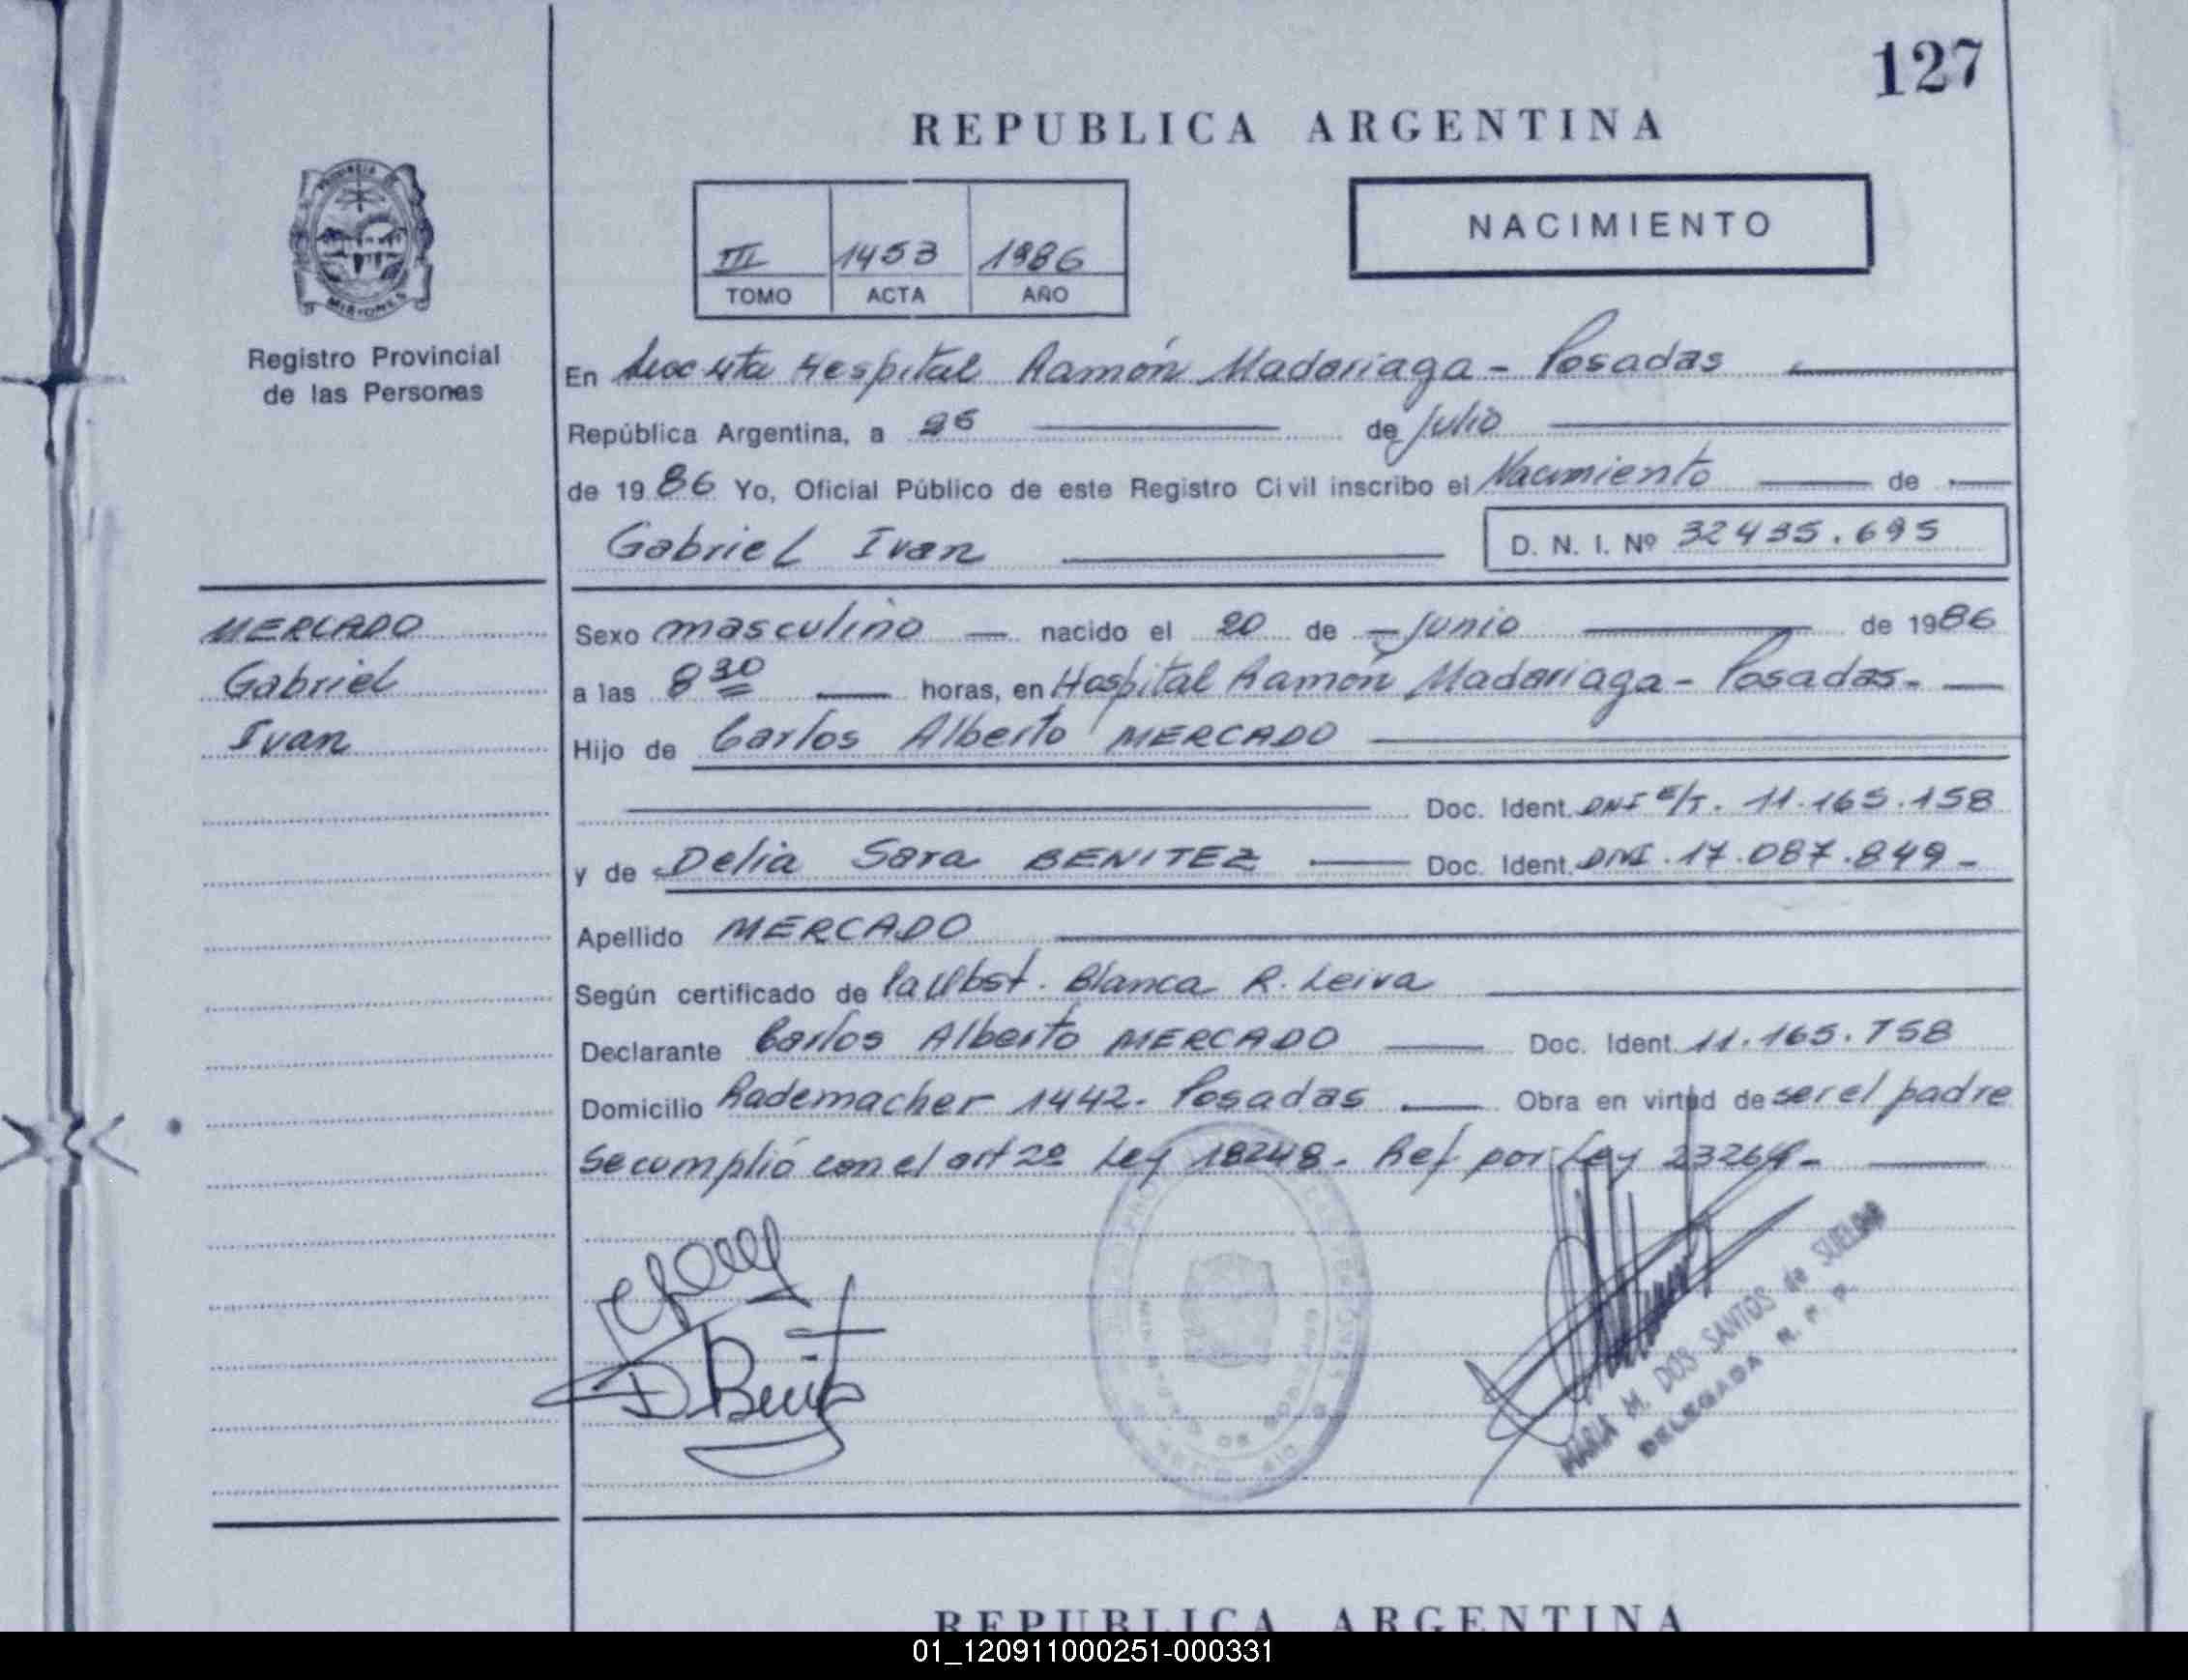 127
REPUBLICA ARGENTINA
PROVINCIA
MISIONES
Registro Provincial
de las Personas
III 1453 1986
TOMO ACTA AÑO
NACIMIENTO
En Hospital Ramón Madariaga - Posadas
República Argentina, a 25 de Julio
de 1986 Yo, Oficial Público de este Registro Civil inscribo el Nacimiento de
Gabriel Ivan
D. N. I. Nº 32435.695
MERCADO
Gabriel
Ivan
Sexo masculino nacido el 20 de Junio de 1986
a las 8 30 horas, en Hospital Ramón Madariaga - Posadas -
Hijo de Carlos Alberto MERCADO
Doc. Ident. DNI E/T. 11.165.158
y de Delia Sara BENITEZ Doc. Ident. DNI. 17.087.849 -
Apellido MERCADO
Según certificado de la Obst. Blanca R. Leiva
Declarante Carlos Alberto MERCADO Doc. Ident. 11.165.758
Domicilio Rademacher 1442 - Posadas Obra en virtud de ser el padre
Se cumplió con el art 2º Ley 18248 - Ref por Ley 23264 -
MARIA M. DOS SANTOS de SUELDO
DELEGADA R. P. P.
REPUBLICA ARGENTINA
01_120911000251-000331